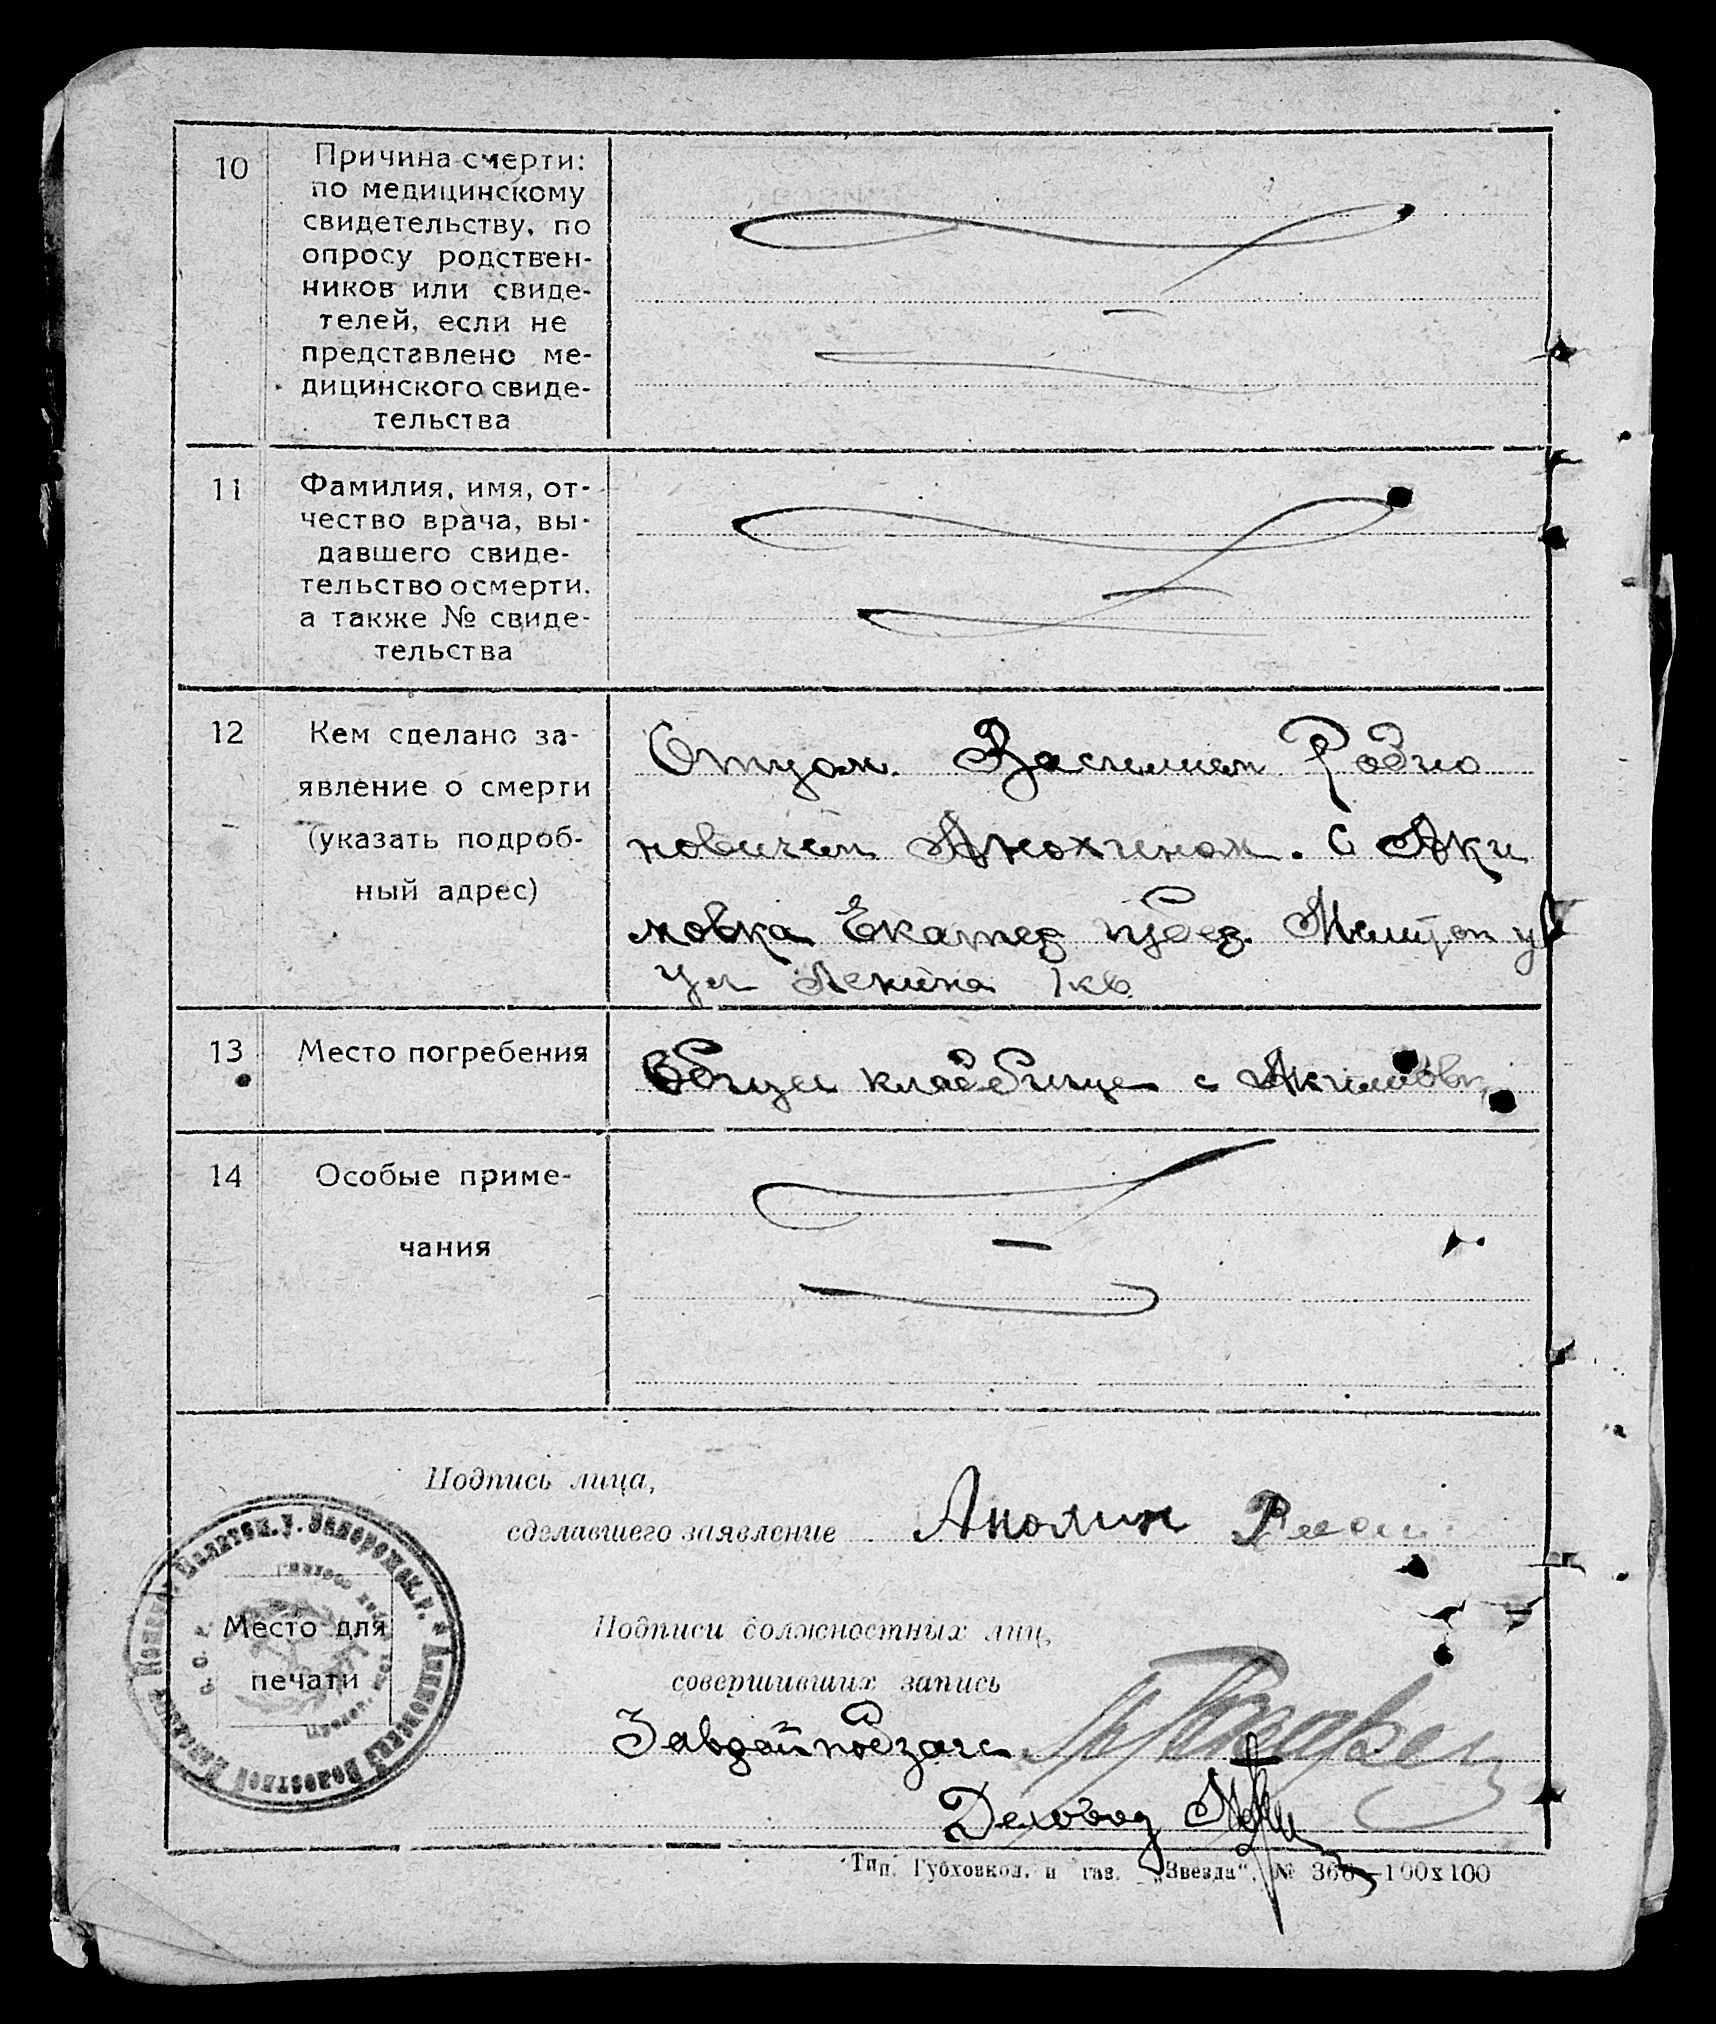 10
Причина смерти:
по медицинскому
свидетельству, по
опросу родствен-
ников или свиде-
телей, если не
представлено ме-
дицинского свиде-
тельства
11
Фамилия, имя, от-
чество врача, вы-
давшего свиде-
тельство о смерти,
а также № свиде-
тельства
12
Кем сделано за-
явление о смерти
(указать подроб-
ный адрес)
Отцом. Василием Родио
новичем Анохином. С Аки
мовка Екатер губер. Мелитоп у
ул Ленина 1 кв.
13
Место погребения
Общее кладбище с Акимовк
14
Особые приме-
чания
Подпись лица,
сделавшего заявление Анохин
Место для
печати
Подписи должностных лиц,
совершивших запись
Деловод
Тип. Губховкод. и газ. „Звезда“. № 366—100х100